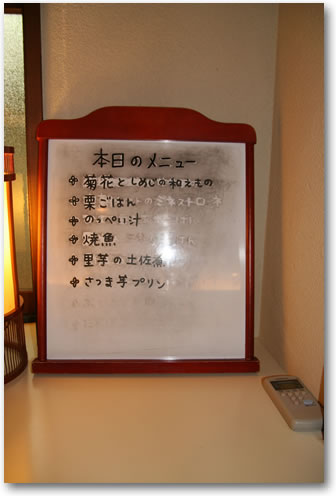 本日のメニュー
菊花としめじの和えもの
栗ごはん
のっぺい汁
焼魚
里芋の土佐煮
さつま芋プリン